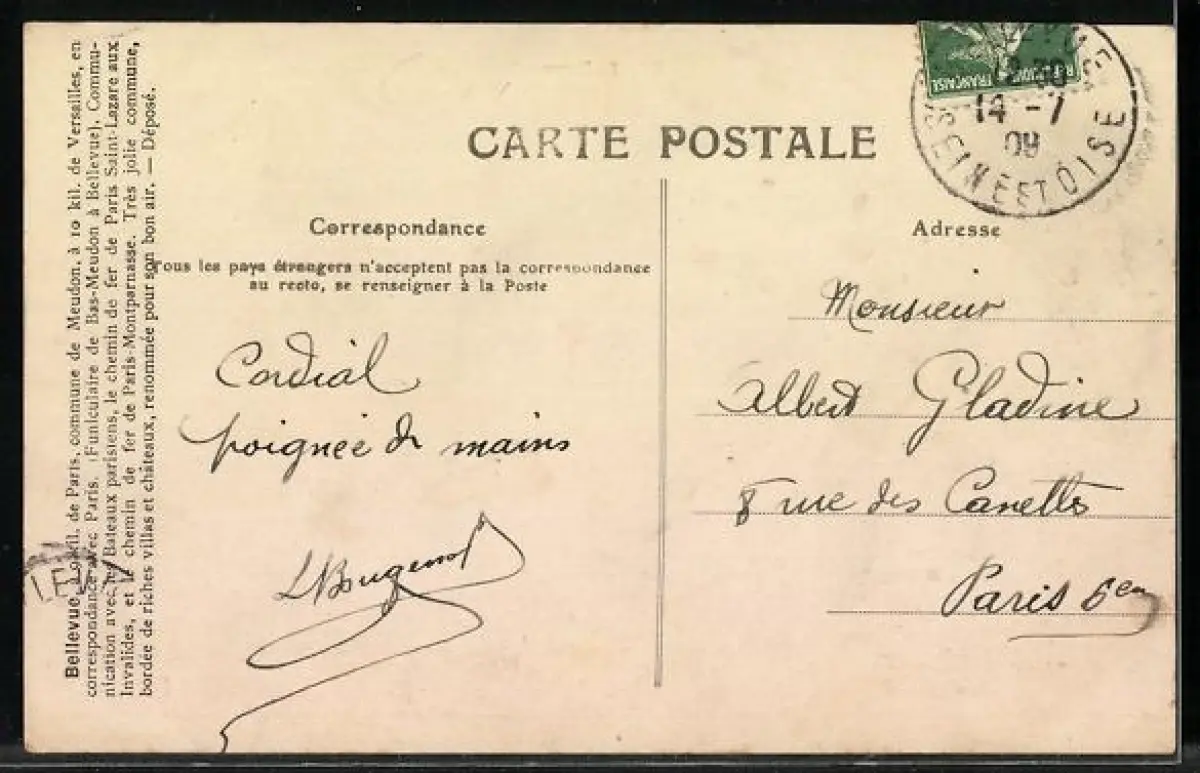 CARTE POSTALE
Correspondance
Tous les pays étrangers n'acceptent pas la correspondance
au recto, se renseigner à la Poste
Cordial
poignée de mains
Adresse
Monsieur
Albert Gladine
8 rue des Canettes
Paris 6em
RÉPUBLIQUE FRANÇAISE
14 - 7
09
SEINE ET OISE
Bellevue, à 9 kil. de Paris, commune de Meudon, à 10 kil. de Versailles, en
correspondance avec Paris. (Funiculaire de Bas-Meudon à Bellevue). Commu-
nication avec les Bateaux parisiens, le chemin de fer de Paris Saint-Lazare aux
Invalides, et le chemin de fer de Paris-Montparnasse. Très jolie commune,
bordée de riches villas et châteaux, renommée pour son bon air. — Déposé.